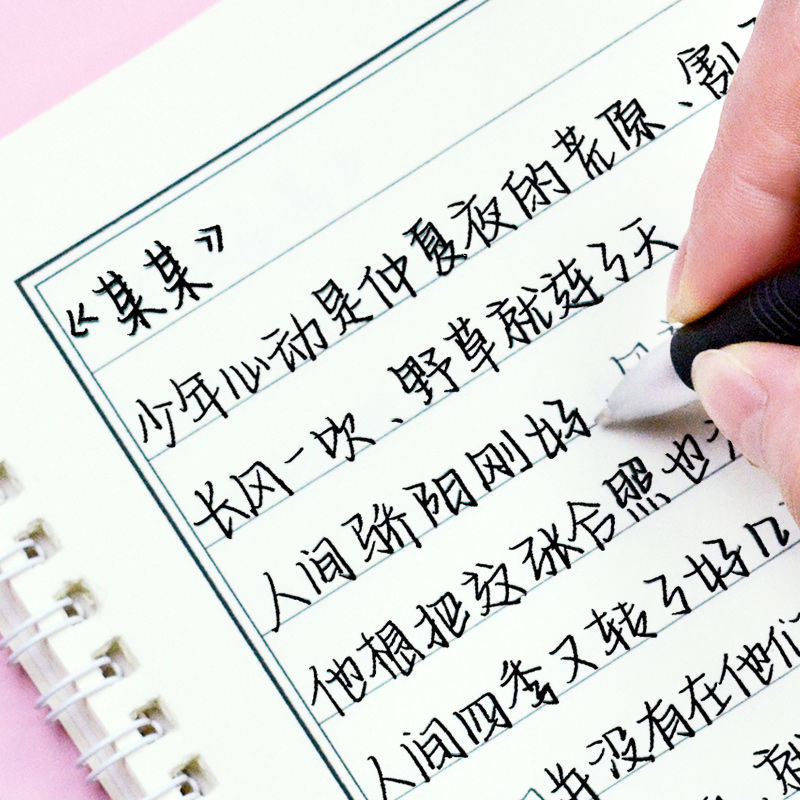 《某某》
少年心动是仲夏夜的荒原、割
长风一吹、野草就连了天
人间骄阳刚好
他想把这张合照也
人间四季又转了好几
并没有在他们
就